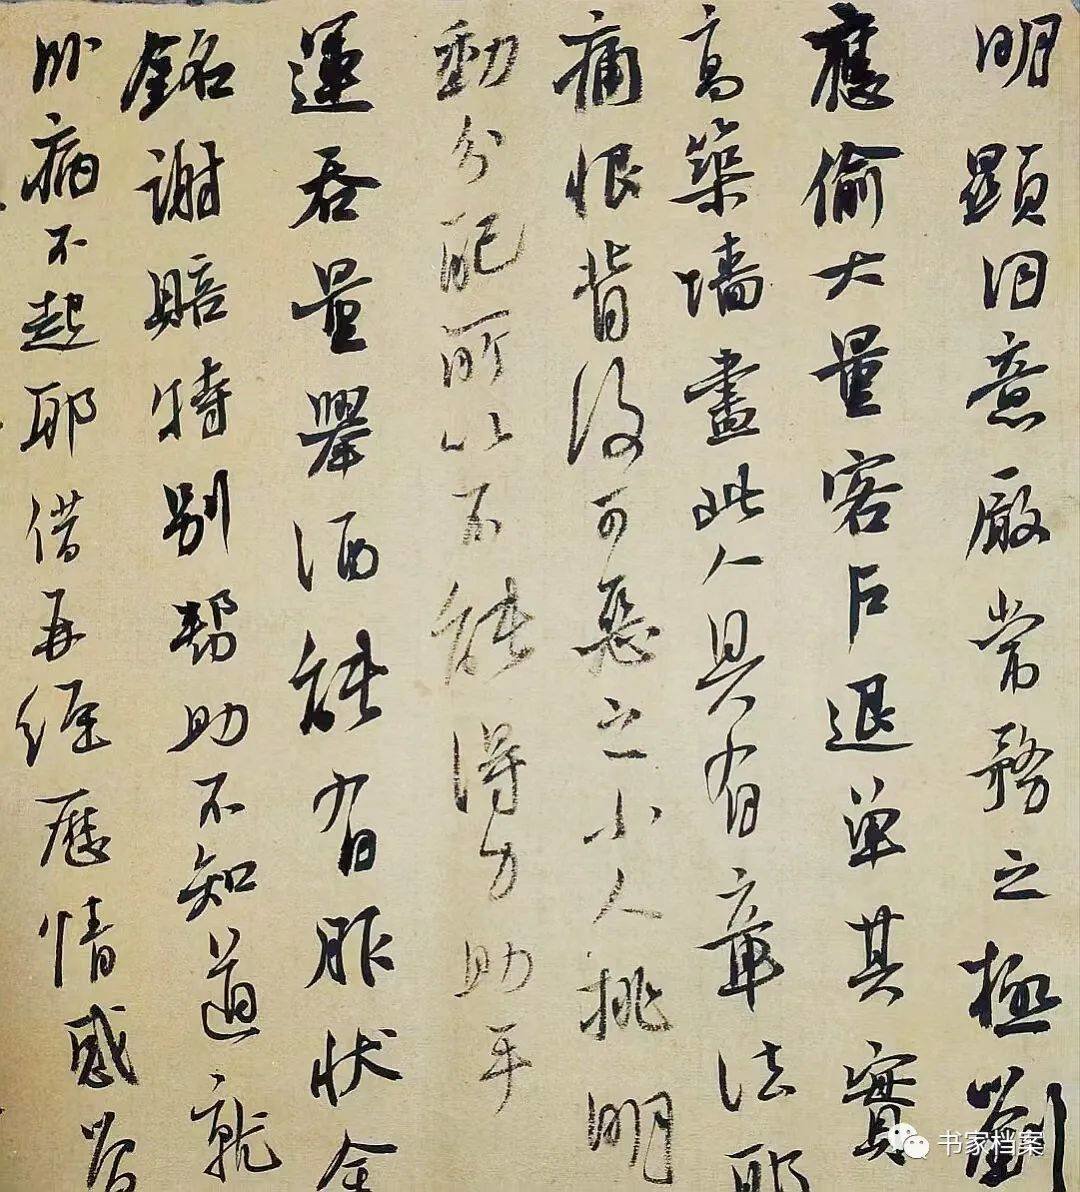 明顯旧意厰常務之極劉
應偷大量客戶退单其實
高築墙盡此人具有章法耶
痛恨背後可惡之小人挑明
動分配所以不能得力助手
運吞量舉酒能有昨状金
銘谢賠特别幫助不知道就
卧病不起耶借再經歷情感
书家档案